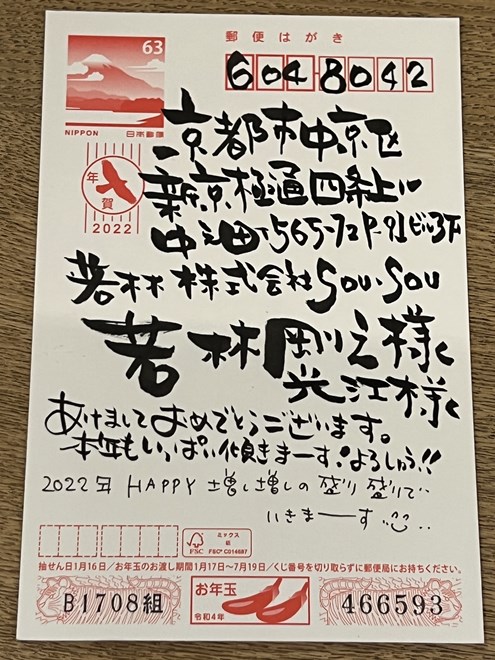 郵便はがき
63
NIPPON 日本郵便
604-8042
年賀
2022
京都市中京区
新京極通四条上ル
中之町565-72 P-91ビル3F
若林株式会社SOU・SOU
若林剛之様
光江様
あけましておめでとうございます。
本年もいっぱい傾きまーす!よろしゅう!!
2022年 HAPPY 増し増しの盛り盛りで‥
いきまーーす
FSC
ミックス
紙
FSC® C014687
抽せん日1月16日/お年玉のお渡し期間1月17日〜7月19日/くじ番号を切り取らずに郵便局にお持ちください。
B1708組
お年玉
令和4年
466593